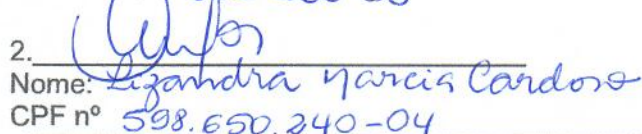 2.
Nome: Lizandra Marcia Cardoso
CPF nº 598.650.240-04